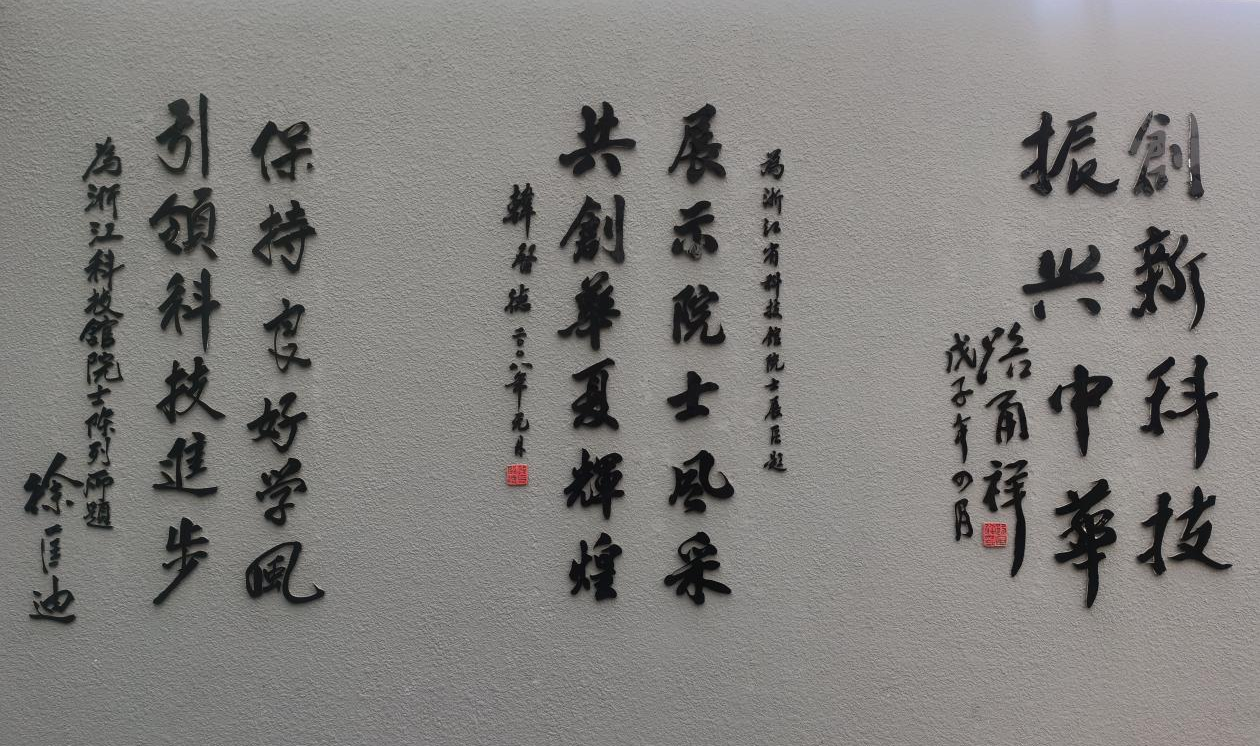 創新科技
振兴中華
路甬祥
戊子年四月
為浙江省科技館院士展區題
展示院士风采
共創華夏輝煌
韓啓德 二〇〇八年元月
保持良好学風
引領科技進步
為浙江科技館院士陈列而題
徐匡迪